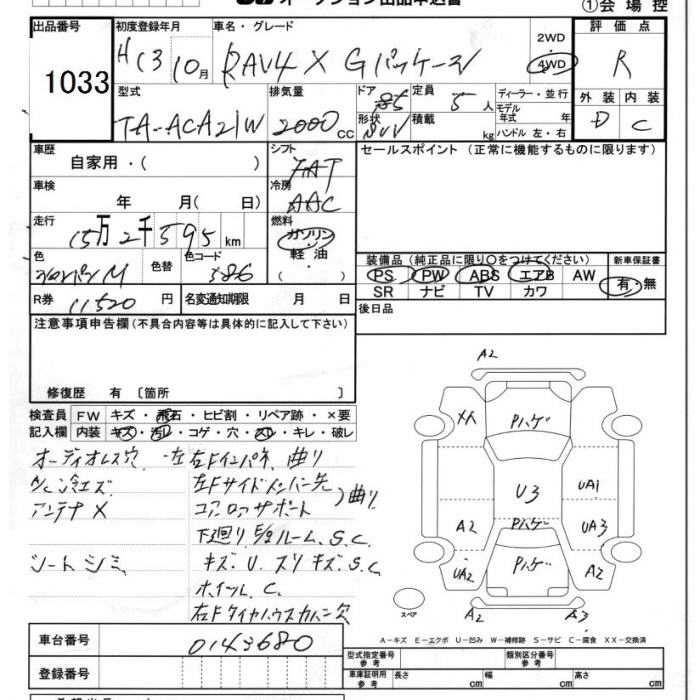 オークション出品申込書
①会場控
出品番号 1033
初度登録年月 H13 10月
車名・グレード RAV4 X Gパッケージ
2WD 4WD
評価点 R
外装 D 内装 C
型式 TA-ACA21W
排気量 2000 cc
ドア 形状 5
定員 5人
積載 kg
ディーラー・並行
モデル年式 年
ハンドル 左・右
車歴 自家用・( )
シフト FAT
セールスポイント (正常に機能するものに限ります)
車検 年 月( 日)
冷房 AAC
走行 15万2千595 km
燃料 ガソリン 軽油・
色 M 色替 色コード 586
装備品 (純正品に限り○をつけてください) 新車保証書
PS PW ABS エアB AW 有・無
SR ナビ TV カワ
R券 11520 円 名変通知期限 月 日
後日品
注意事項申告欄 (不具合内容等は具体的に記入して下さい)
修復歴 有 〔箇所 〕
検査員 FW キズ・飛石・ヒビ割・リペア跡・×要
記入欄 内装 キズ・汚レ・コゲ・穴・スレ・キレ・破レ
オーディオレス穴 左右Fインパネ 曲り
冷エズ 左Fサイドメンバー先
アンテナX コアロッサポート 曲り
下廻り ルーム、S.C.
シートシミ キズ.U.スリキズ.S.C
ホイール C.
右Fタイヤハウスカバー欠
A2
XX Pハゲ
U3 UA1
A2 Pハゲ UA3
UA2 Pハゲ A2
スペア A2 A3
A-キズ E-エクボ U-凹み W-補修跡 S-サビ C-腐食 XX-交換済
車台番号 0143680
型式指定番号 参考 類別区分番号 参考
登録番号
車庫証明用 参考 長さ cm 幅 cm 高さ cm